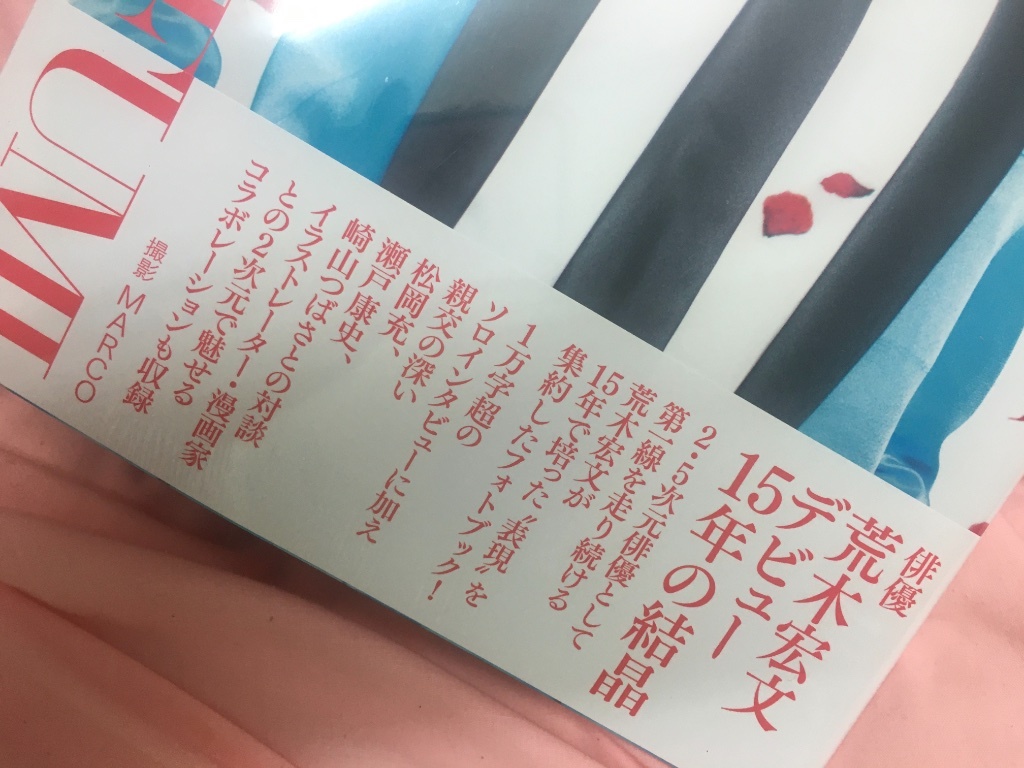 俳優
荒木宏文
デビュー
15年の結晶
2・5次元俳優として
第一線を走り続ける
荒木宏文が
15年で培った〝表現〟を
集約したフォトブック！
1万字超の
ソロインタビューに加え
親交の深い
松岡充、
瀬戸康史、
崎山つばさとの対談
イラストレーター・漫画家
との2次元で魅せる
コラボレーションも収録
撮影 MARCO
UMI